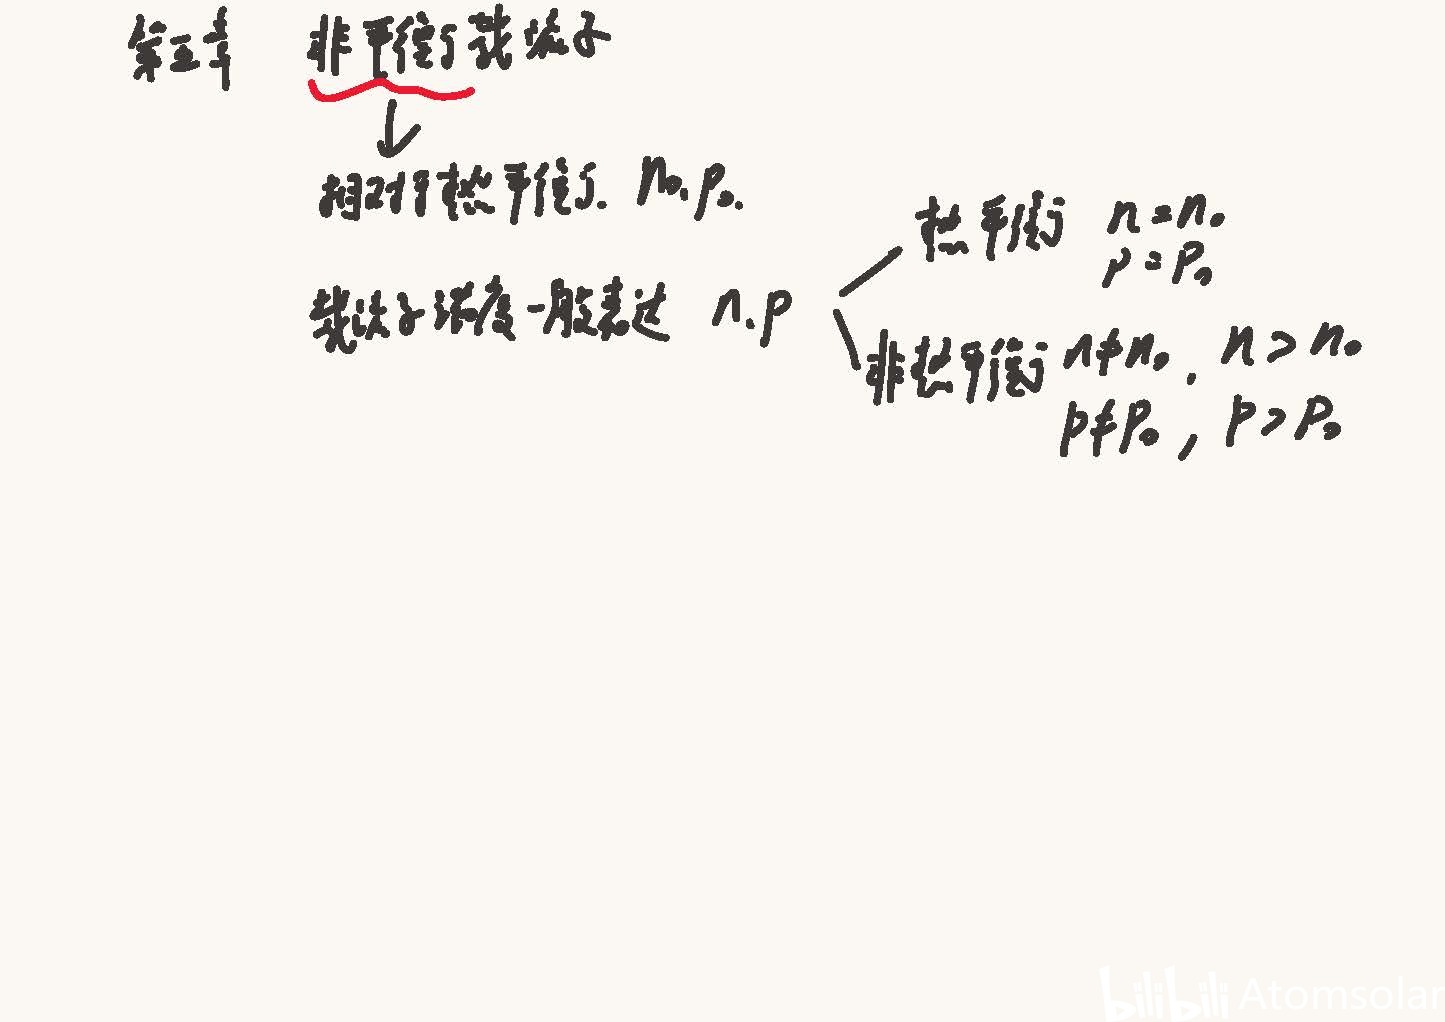 第五章 非平衡载流子
相对于热平衡. n₀. p₀.
载流子浓度一般表达 n. p
热平衡 n = n₀
p = p₀
非热平衡 n ≠ n₀. n > n₀
p ≠ p₀, p > p₀
bilibili Atomsolar